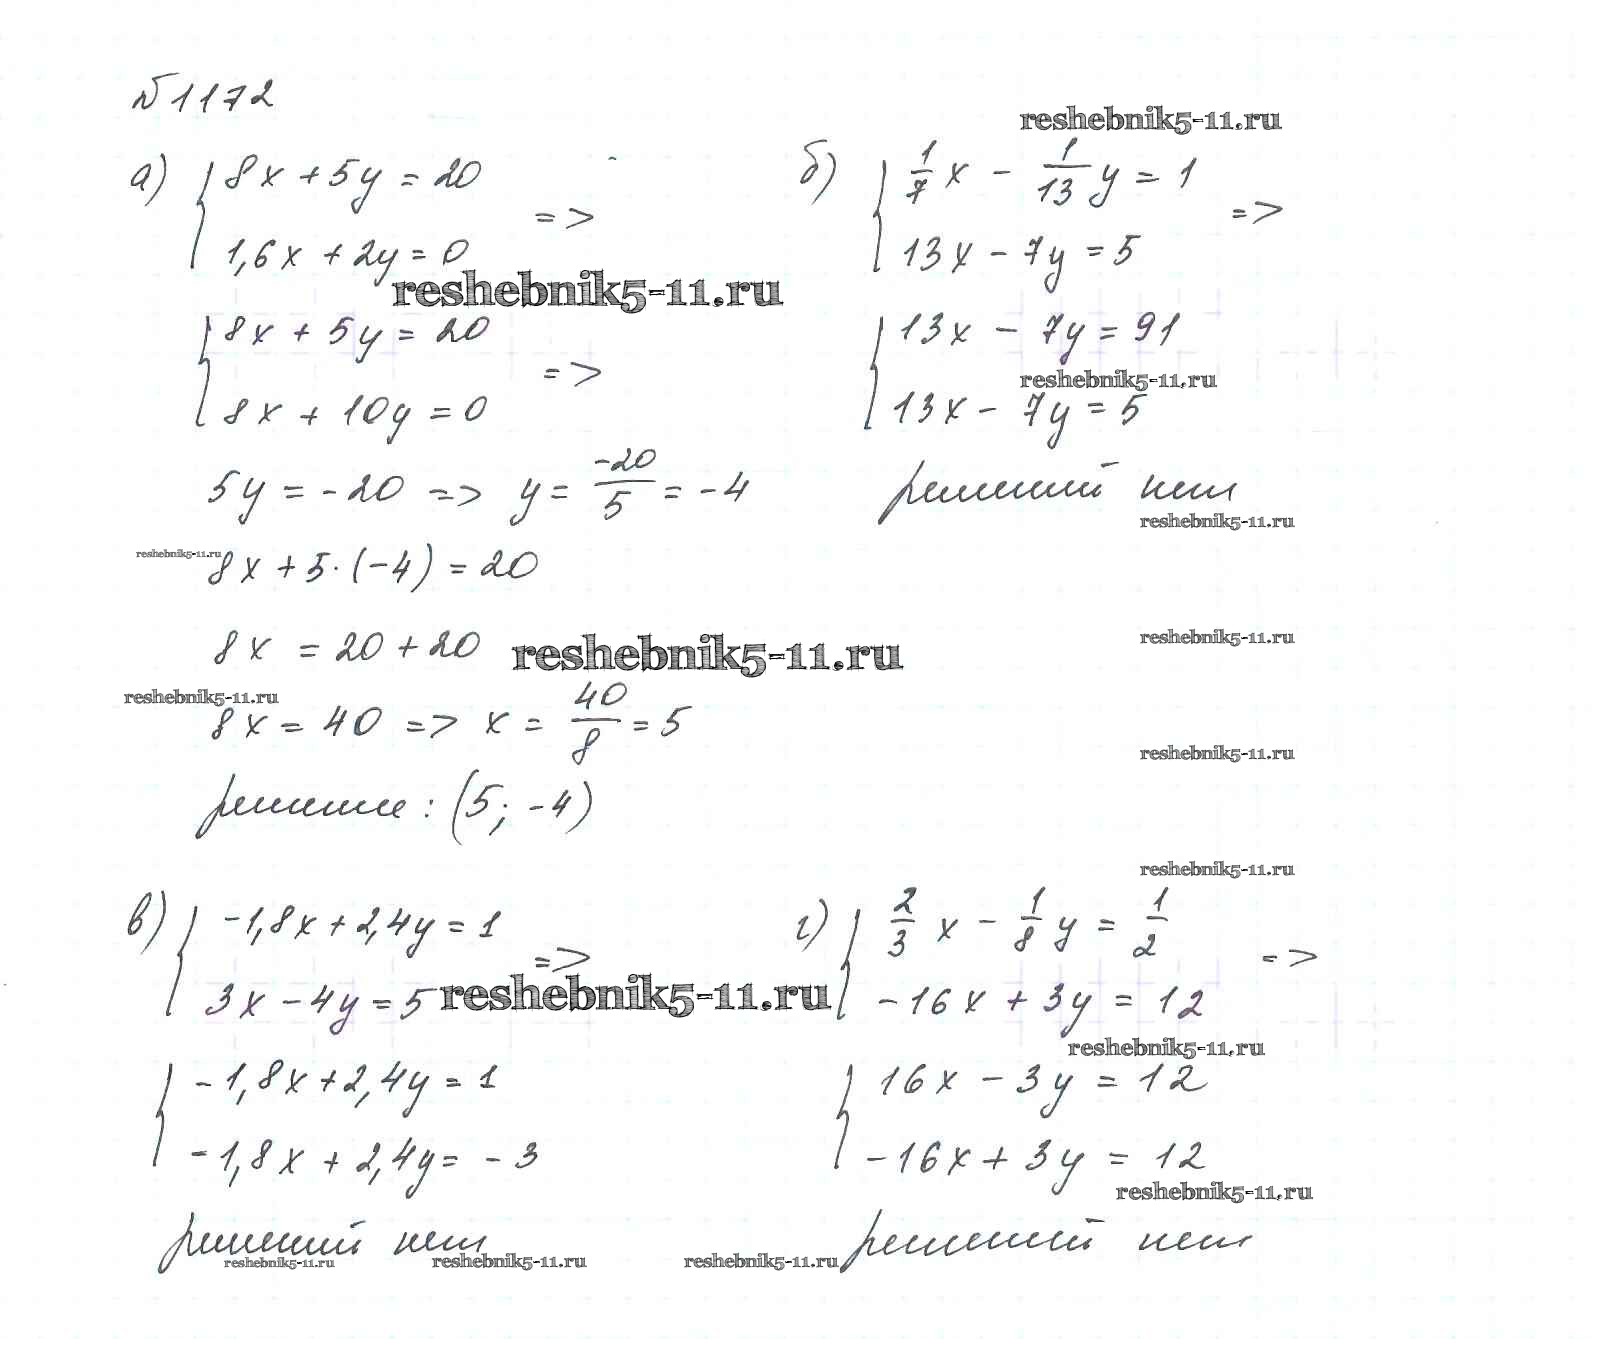 №1172
reshebnik5-11.ru
а) { 8x + 5y = 20
1,6x + 2y = 0 =>
reshebnik5-11.ru
{ 8x + 5y = 20
8x + 10y = 0 =>
5y = -20 => y = -20/5 = -4
reshebnik5-11.ru
8x + 5·(-4) = 20
8x = 20 + 20
reshebnik5-11.ru
reshebnik5-11.ru
8x = 40 => x = 40/8 = 5
решение: (5; -4)
б) { 1/7 x - 1/13 y = 1
13x - 7y = 5 =>
{ 13x - 7y = 91
reshebnik5-11.ru
13x - 7y = 5
решений нет
reshebnik5-11.ru
reshebnik5-11.ru
reshebnik5-11.ru
reshebnik5-11.ru
в) { -1,8x + 2,4y = 1
3x - 4y = 5 =>
reshebnik5-11.ru
{ -1,8x + 2,4y = 1
-1,8x + 2,4y = -3
решений нет
reshebnik5-11.ru
reshebnik5-11.ru
г) { 2/3 x - 1/8 y = 1/2
-16x + 3y = 12 =>
reshebnik5-11.ru
{ 16x - 3y = 12
-16x + 3y = 12
reshebnik5-11.ru
решений нет
reshebnik5-11.ru